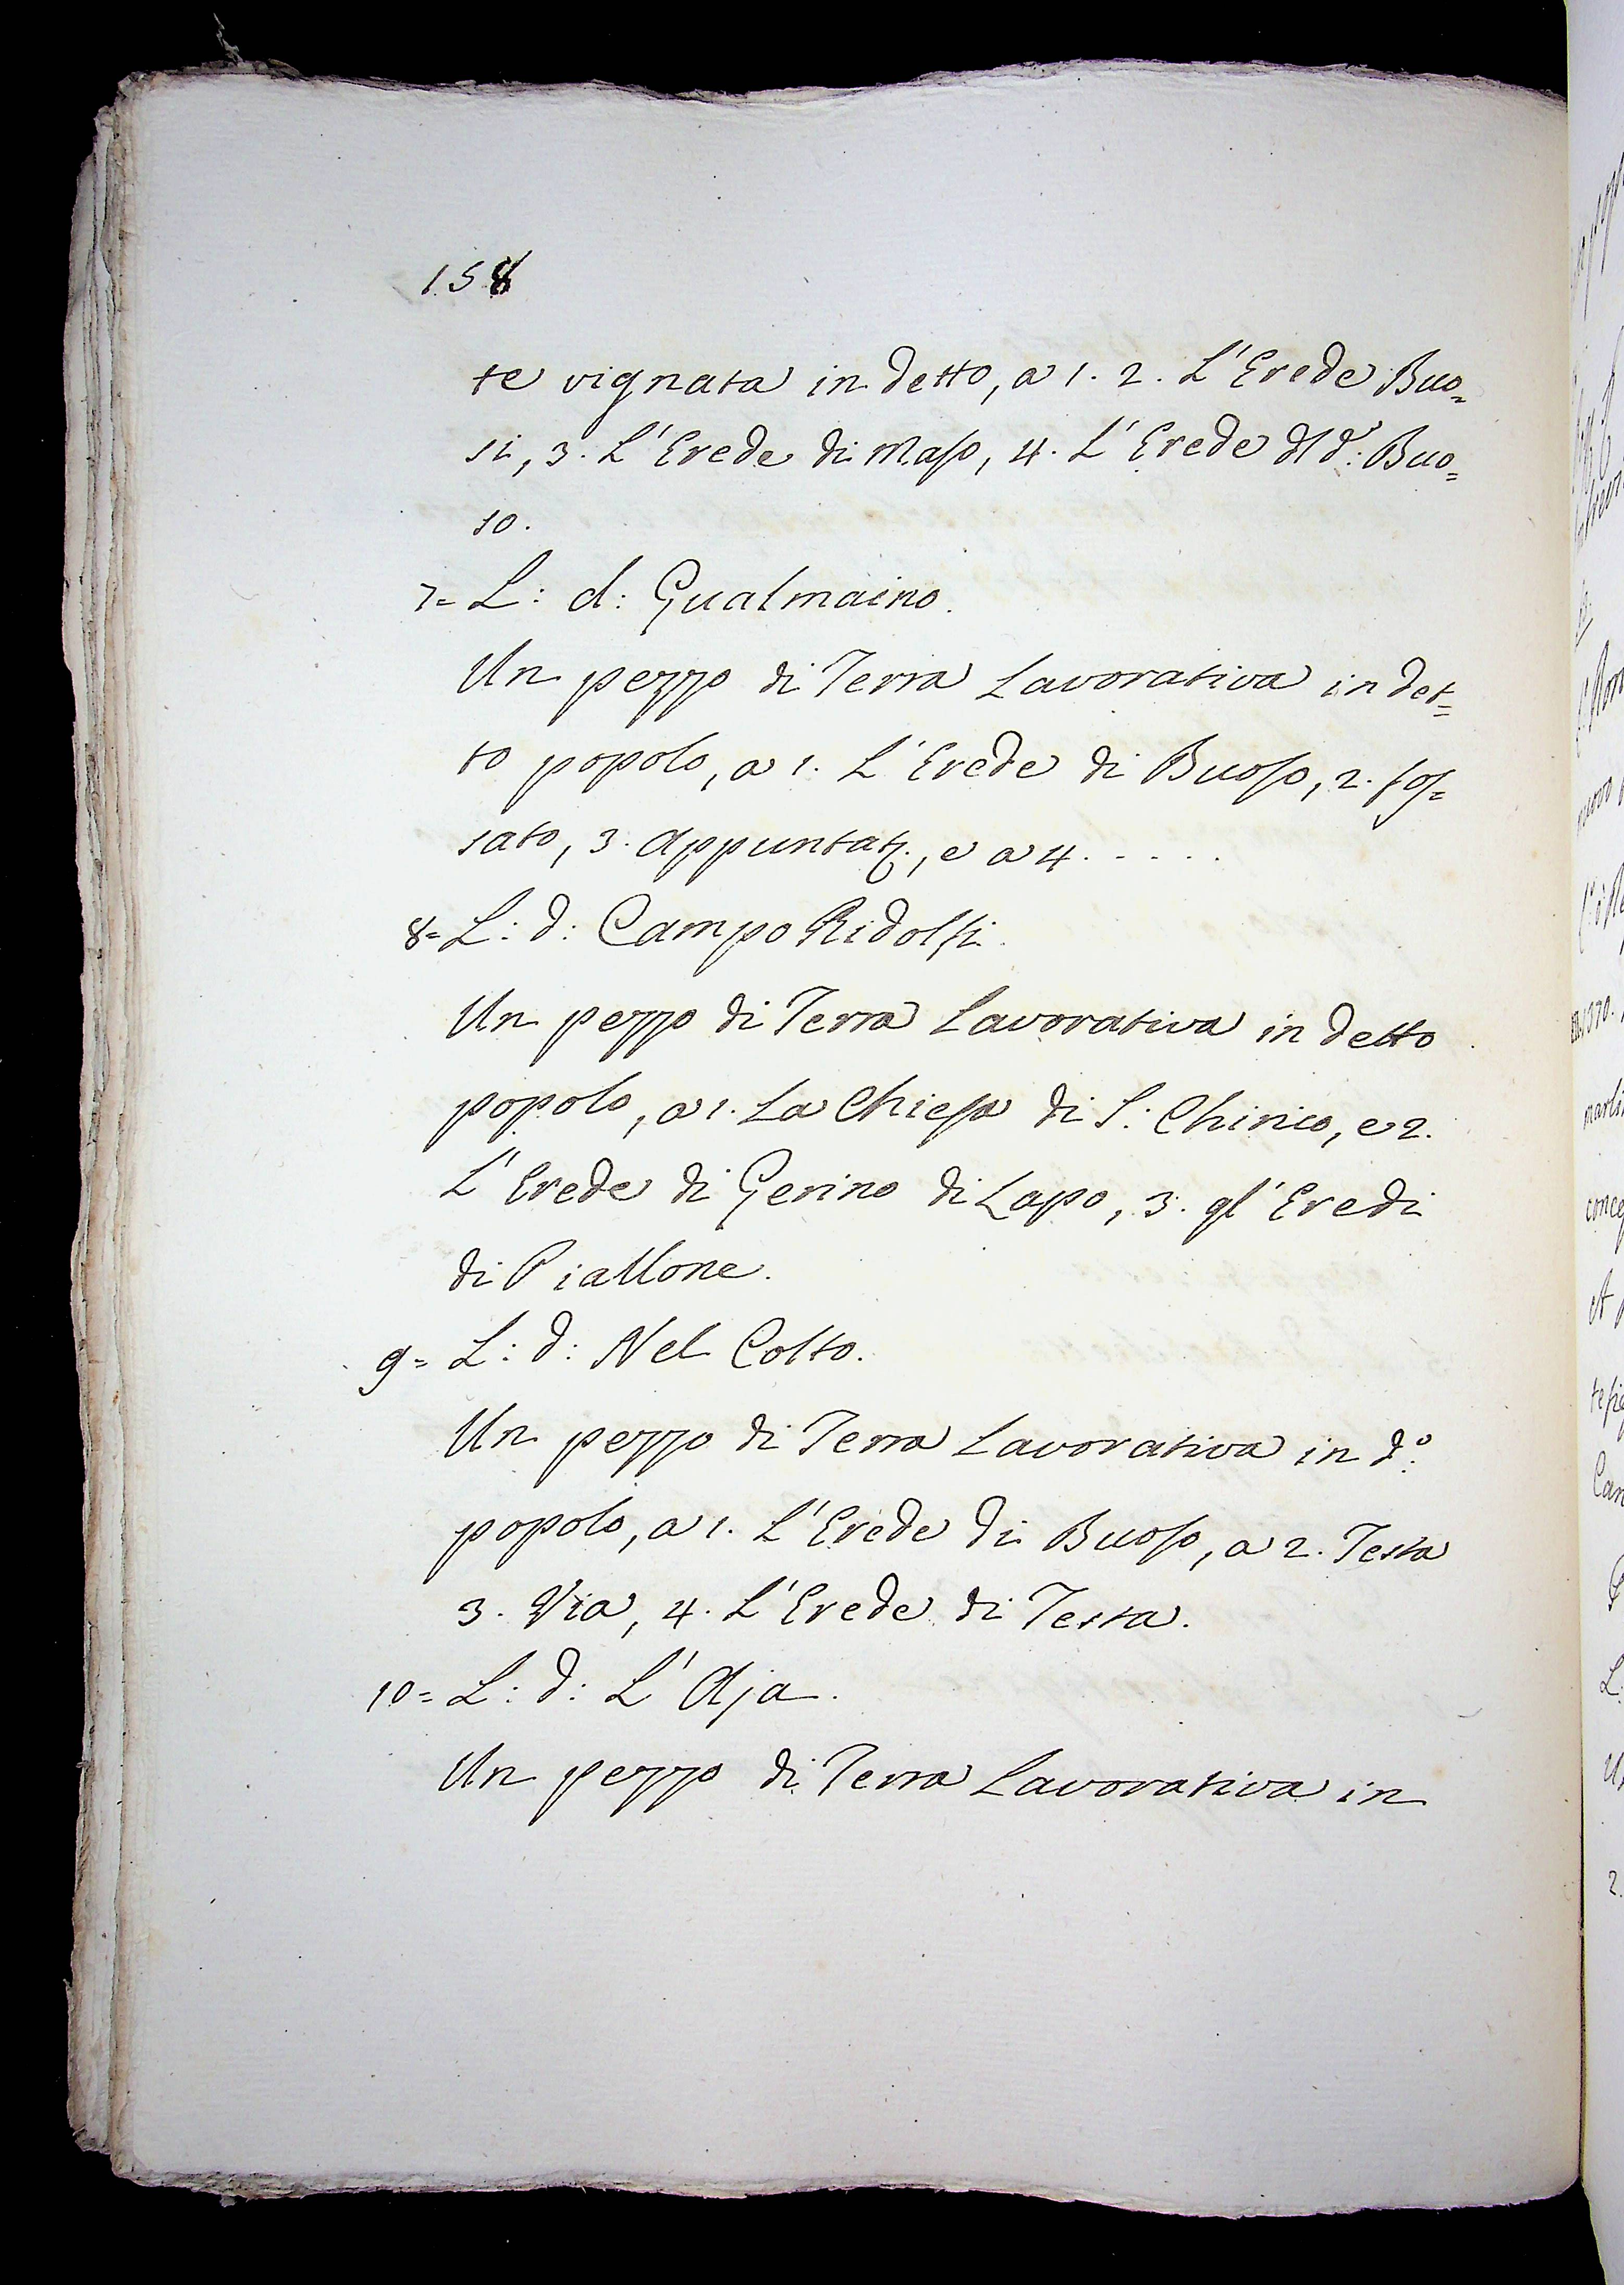 158
te vignata in detto, a 1. 2. L'Erede Buo=
si, 3. L'Erede di Maso, 4. L'Erede dl d.º Buo=
so.
7= L: d: Gualmaino.
Un pezzo di Terra Lavorativa in det=
to popolo, a 1. L'Erede di Buoso, 2. fos=
sato, 3. Appuntat., e a 4. . . . .
8= L: d: Campo Ridolfi.
Un pezzo di Terra Lavorativa in detto
popolo, a 1. La Chiesa di S. Chirico, e 2.
L'Erede di Gerino di Lapo, 3. gl'Eredi
di Piallone.
9= L: d: Nel Colto.
Un pezzo di Terra Lavorativa in d.º
popolo, a 1. L'Erede di Buoso, a 2. Testa
3. Via, 4. L'Erede di Testa.
10= L: d: L'Aja.
Un pezzo di Terra Lavorativa in